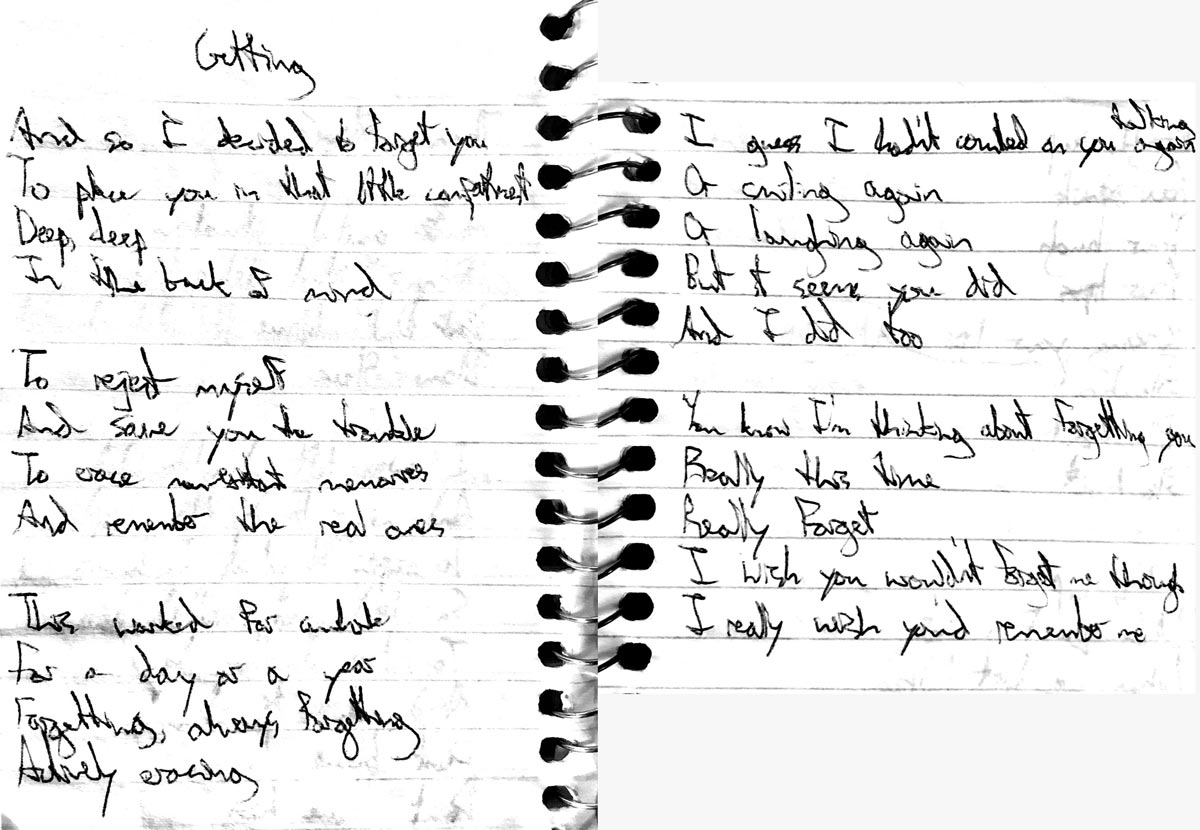 Getting
And so I decided to forget you
To place you in that little compartment
Deep, deep
In the back of mind
To reject myself
And save you the trouble
To erase memories
And remember the real ones
This worked for awhile
For a day or a year
Forgetting, always forgetting
Actively erasing
I guess I hadn't counted on you talking again
Or smiling again
Or laughing again
But it seems you did
And I did too
You know I'm thinking about forgetting you
Really this time
Really forget
I wish you wouldn't forget me though
I really wish you'd remember me